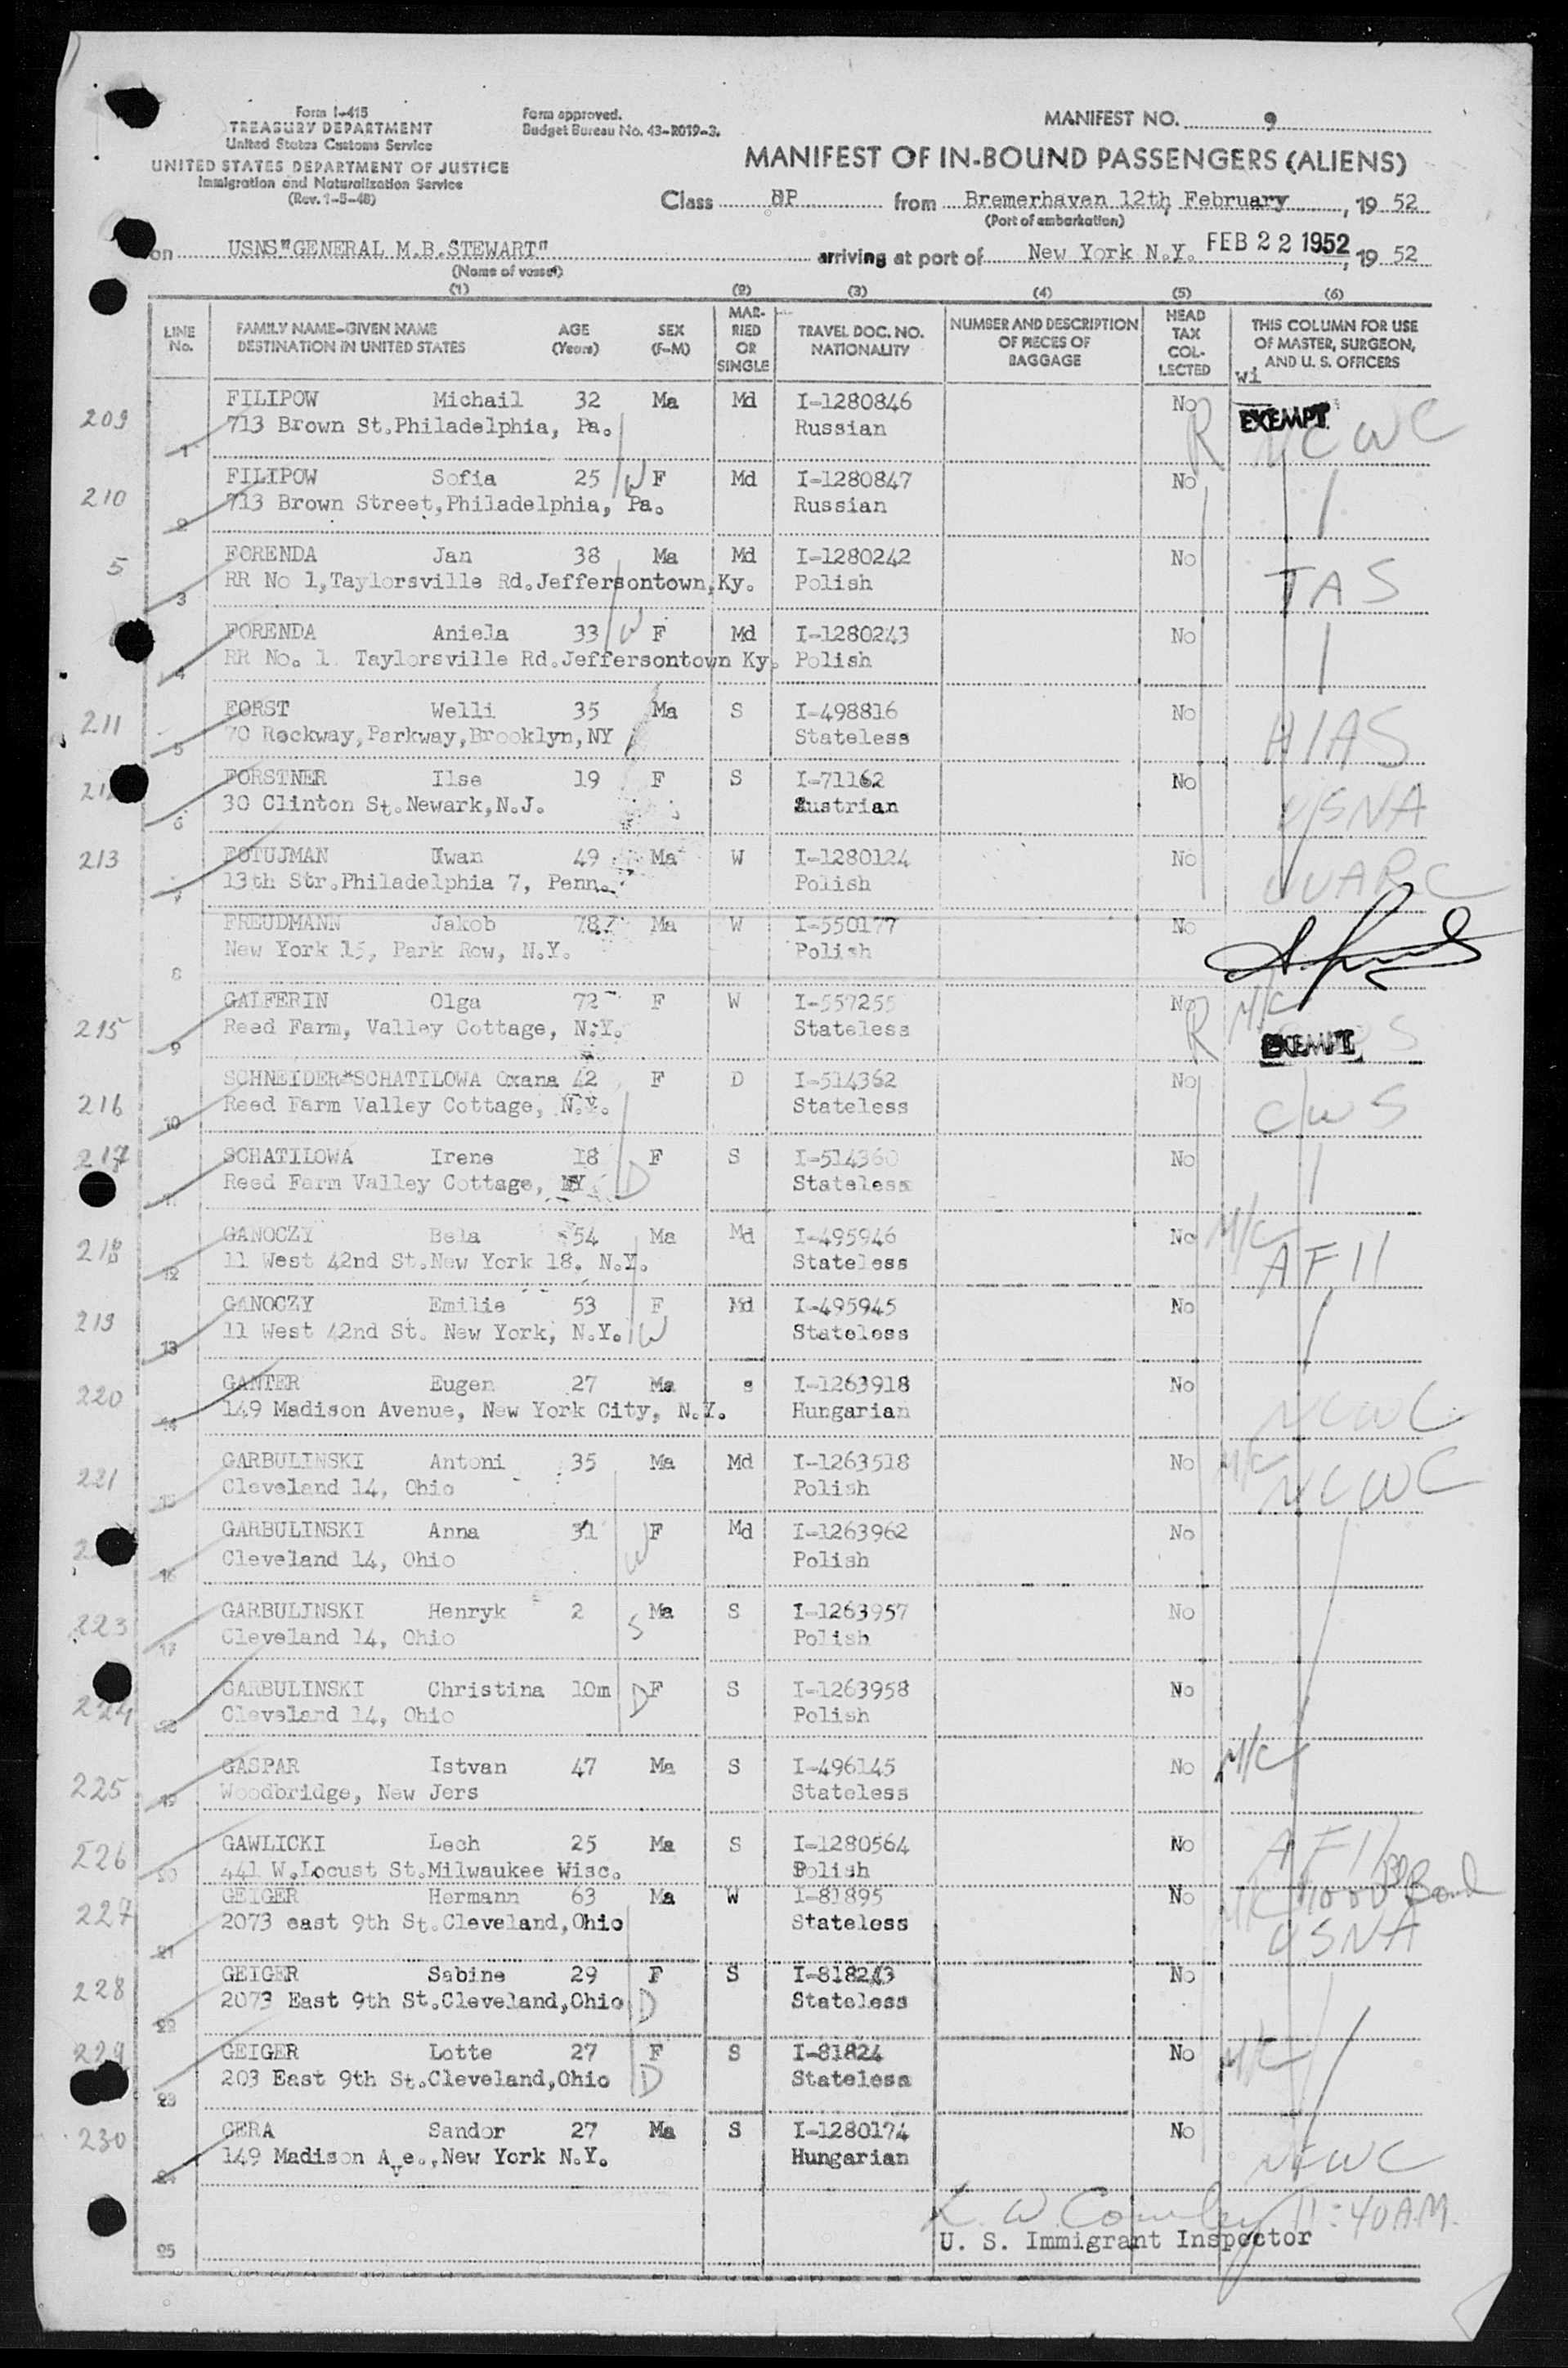 Form I-415
TREASURY DEPARTMENT
United States Customs Service
UNITED STATES DEPARTMENT OF JUSTICE
Immigration and Naturalization Service
(Rev. 1-5-48)
Form approved.
Budget Bureau No. 43-R019-3.
MANIFEST NO. 9
MANIFEST OF IN-BOUND PASSENGERS (ALIENS)
Class DP from Bremerhaven 12th February, 19 52
(Port of embarkation)
on USNS"GENERAL M.B.STEWART" arriving at port of New York N.Y. FEB 22 1952, 19 52
(Name of vessel)
(1) (2) (3) (4) (5) (6)
LINE No. FAMILY NAME-GIVEN NAME DESTINATION IN UNITED STATES AGE (Years) SEX (F-M) MARRIED OR SINGLE TRAVEL DOC. NO. NATIONALITY NUMBER AND DESCRIPTION OF PIECES OF BAGGAGE HEAD TAX COLLECTED THIS COLUMN FOR USE OF MASTER, SURGEON, AND U. S. OFFICERS
wi
209 FILIPOW Michail 32 Ma Md I-1280846 No R EXEMPT NCWC
1 713 Brown St.Philadelphia, Pa. Russian
210 FILIPOW Sofia 25 W F Md I-1280847 No
2 713 Brown Street,Philadelphia, Pa. Russian
5 FORENDA Jan 38 Ma Md I-1280242 No TAS
3 RR No 1,Taylorsville Rd.Jeffersontown,Ky. Polish
FORENDA Aniela 33 W F Md I-1280243 No
4 RR No. 1. Taylorsville Rd.Jeffersontown Ky. Polish
211 FORST Welli 35 Ma S I-498816 No HIAS
5 70 Rockway,Parkway,Brooklyn,NY Stateless
FORSTNER Ilse 19 F S I-71162 No USNA
6 30 Clinton St.Newark,N.J. Austrian
213 FOTUJMAN Iwan 49 Ma W I-1280124 No UUARC
7 13th Str.Philadelphia 7, Penn. Polish
FREUDMANN Jakob 78 Ma W I-550177 No
8 New York 15, Park Row, N.Y. Polish
215 GALFERIN Olga 72 F W I-557255 No R M/C
9 Reed Farm, Valley Cottage, N.Y. Stateless EXEMPT
216 SCHNEIDER*SCHATILOWA Oxana 42 F D I-514362 No CWS
10 Reed Farm Valley Cottage, N.Y. Stateless
217 SCHATILOWA Irene 18 F S I-514360 No
11 Reed Farm Valley Cottage, NY D Stateless
218 GANOCZY Bela 54 Ma Md I-495946 No M/C AFII
12 11 West 42nd St.New York 18. N.Y. Stateless
219 GANOCZY Emilie 53 F Md I-495945 No
13 11 West 42nd St. New York, N.Y. W Stateless
220 GANTER Eugen 27 Ma s I-1263918 No NCWC
14 149 Madison Avenue, New York City, N.Y. Hungarian
221 GARBULINSKI Antoni 35 Ma Md I-1263518 No M/C NCWC
15 Cleveland 14, Ohio Polish
GARBULINSKI Anna 31 W F Md I-1263962 No
16 Cleveland 14, Ohio Polish
223 GARBULINSKI Henryk 2 S Ma S I-1263957 No
17 Cleveland 14, Ohio Polish
224 GARBULINSKI Christina 10m D F S I-1263958 No
18 Cleveland 14, Ohio Polish
225 GASPAR Istvan 47 Ma S I-496145 No M/C
19 Woodbridge, New Jers Stateless
226 GAWLICKI Lech 25 Ma S I-1280564 No AFII
20 441 W.Locust St.Milwaukee Wisc. Polish
227 GEIGER Hermann 63 Ma W I-81895 No M/C 1000 Bond
21 2073 east 9th St.Cleveland,Ohio Stateless USNA
228 GEIGER Sabine 29 F S I-81823 No
22 2073 East 9th St.Cleveland,Ohio D Stateless
229 GEIGER Lotte 27 F S I-81824 No M/C
23 203 East 9th St.Cleveland,Ohio D Stateless
230 GERA Sandor 27 Ma S I-1280174 No NCWC
24 149 Madison Ave.,New York N.Y. Hungarian
K. W. Cowley 11:40 A.M.
25 U. S. Immigrant Inspector